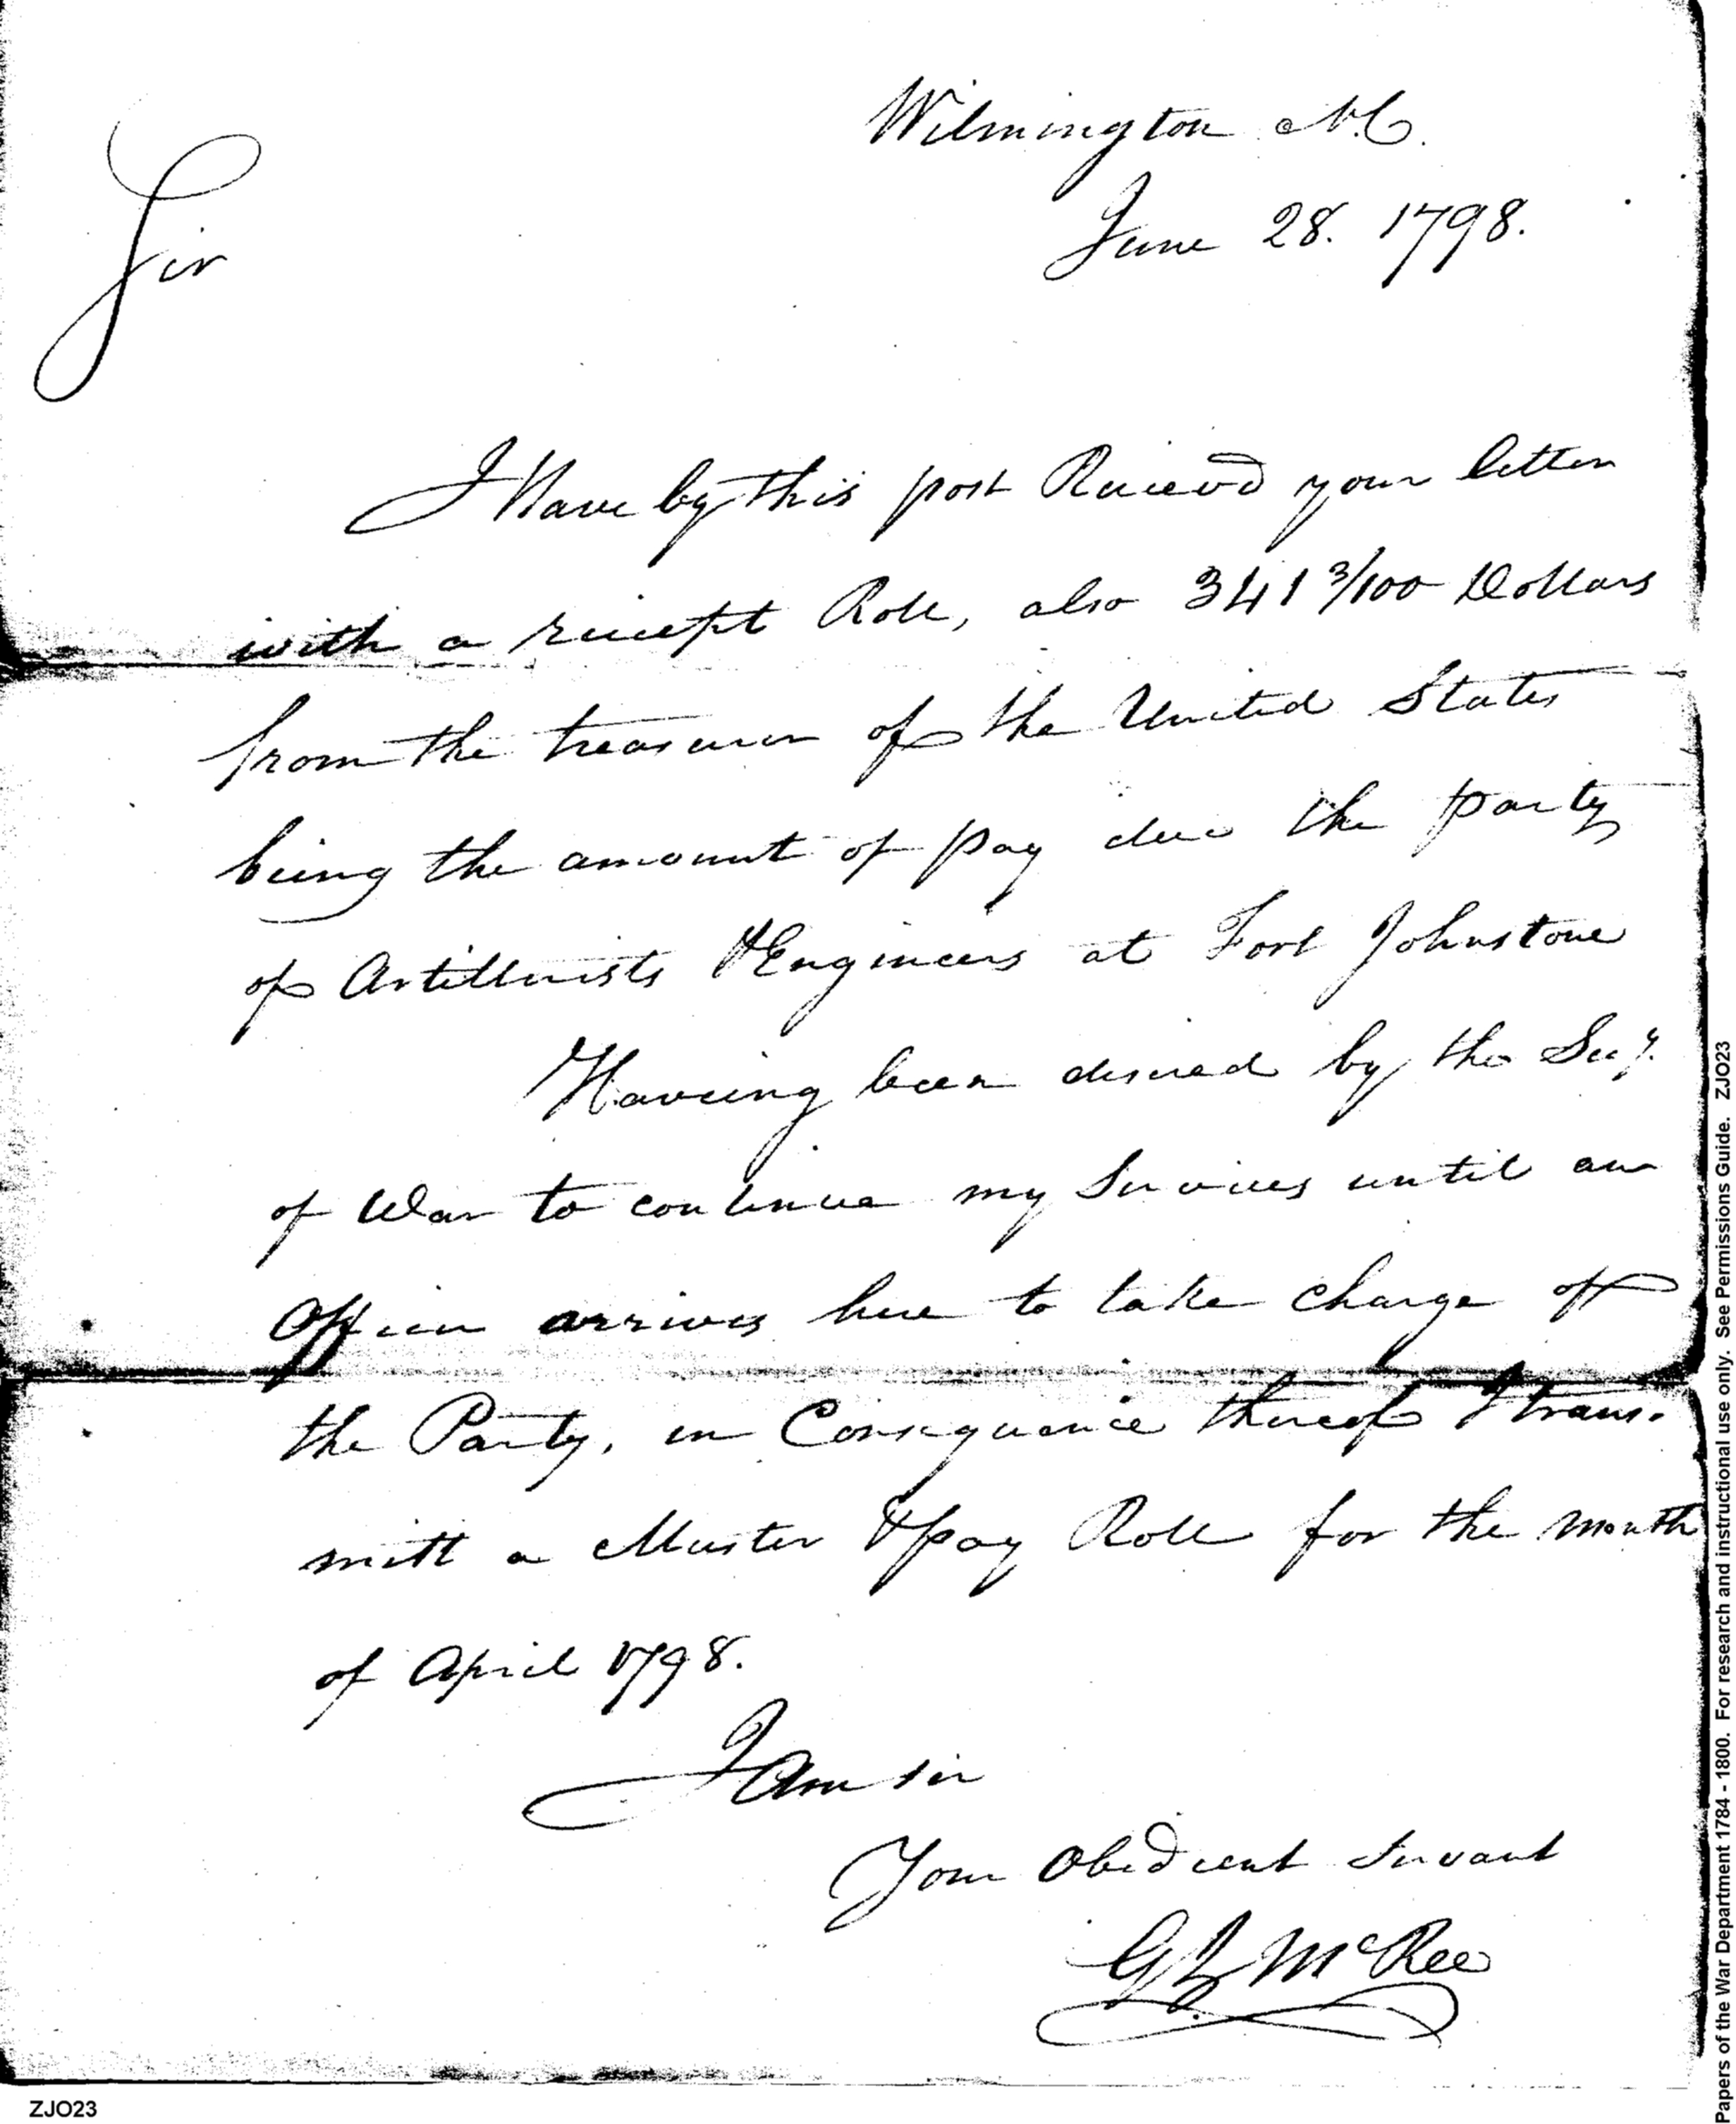 Wilmington N.C.
June 28. 1798.
Sir
I Have by this post Recievd your letter
with a reciept Roll, also 341 3/100 Dollars
from the treasurer of the United States
being the amount of pay due the party
of Artillerists & Engineers at Fort Johnstone
Haveing been desired by the Secy.
of War to continue my Services until an
Officer arrives here to take charge of
the Party, in Consequence thereof I trans-
mitt a Muster & pay Roll for the month
of April 1798.
I am sir
Your Obedient Servant
G J McRee
ZJO23
Papers of the War Department 1784 - 1800. For research and instructional use only. See Permissions Guide. ZJO23